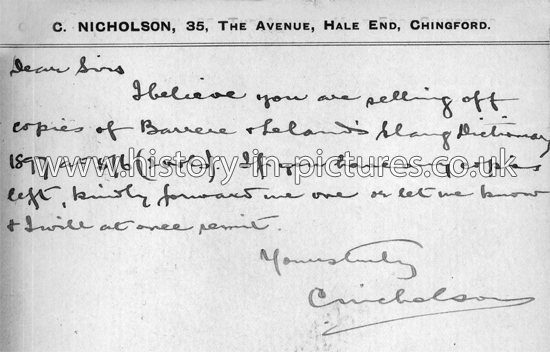 C. NICHOLSON, 35, THE AVENUE, HALE END, CHINGFORD.
Dear Sirs
I believe you are selling off
copies of Barrere & Leland's Slang Dictionary
1897 (2 vols). If you have any copies
left, kindly forward me one or let me know
& I will at once remit.
Yours truly
C Nicholson
www.history-in-pictures.co.uk